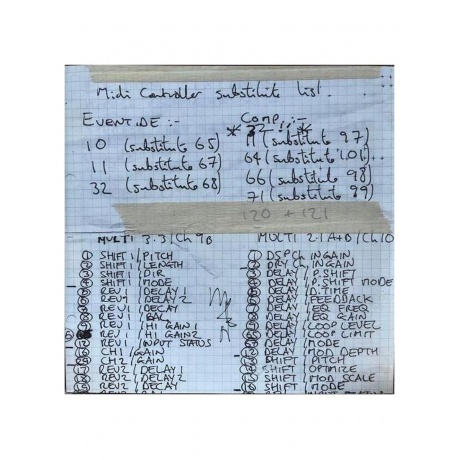 Midi Controller substitute list.
EVENTIDE :-
COMP. :-
10 (substitute 65)
11 (substitute 67)
32 (substitute 68)
(substitute 97)
64 (substitute 101)
66 (substitute 98)
71 (substitute 99)
120 + 121
MULTI 3.3/Ch 9B
SHIFT 1/PITCH
SHIFT 1/LENGTH
SHIFT 1/DIR
SHIFT 1/MODE
REV 1/DELAY 1
REV 1/DELAY 2
REV 1/DECAY
REV 1/BAL
REV 1/HI GAIN 1
REV 1/HI GAIN 2
REV 1/INPUT STATUS
CH 1/GAIN
CH 2/GAIN
REV 2/DELAY 1
REV 2/DELAY 2
REV 2/DECAY
MULTI 2.1 A+B/Ch 10
DSPCh INGAIN
DSPCh INGAIN
DELAY/P.SHIFT
DELAY/P.SHIFT MODE
DELAY/D.TIME
DELAY/FEEDBACK
DELAY/EQ FREQ
DELAY/EQ GAIN
DELAY/LOOP LEVEL
DELAY/LOOP LIMIT
DELAY/MODE
DELAY/MOD DEPTH
SHIFT/PITCH
SHIFT/OPTIMIZE
SHIFT/MOD SCALE
SHIFT/MODE